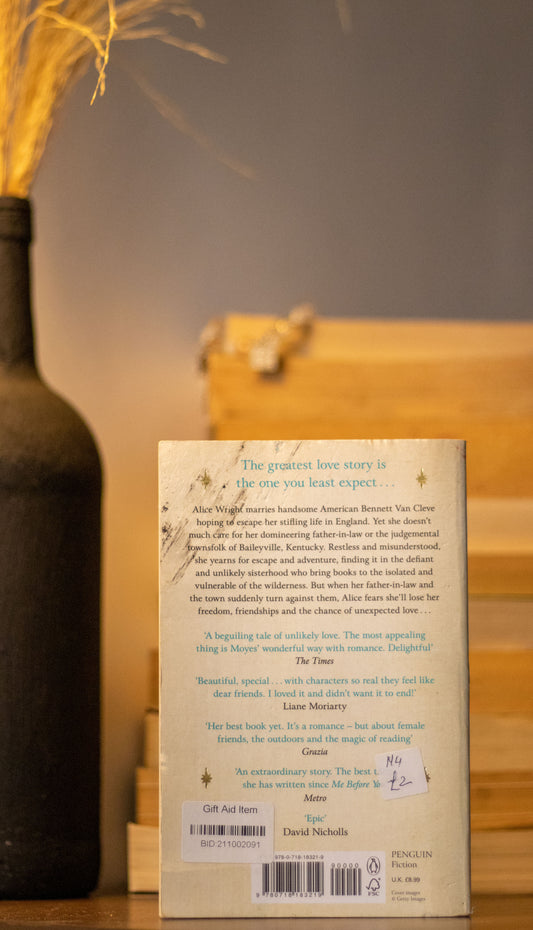 The greatest love story is
the one you least expect . . .
Alice Wright marries handsome American Bennett Van Cleve
hoping to escape her stifling life in England. Yet she doesn't
much care for her domineering father-in-law or the judgemental
townsfolk of Baileyville, Kentucky. Restless and misunderstood,
she yearns for escape and adventure, finding it in the defiant
and unlikely sisterhood who bring books to the isolated and
vulnerable of the wilderness. But when her father-in-law and
the town suddenly turn against them, Alice fears she'll lose her
freedom, friendships and the chance of unexpected love . . .
'A beguiling tale of unlikely love. The most appealing
thing is Moyes' wonderful way with romance. Delightful'
The Times
'Beautiful, special . . . with characters so real they feel like
dear friends. I loved it and didn't want it to end!'
Liane Moriarty
'Her best book yet. It's a romance – but about female
friends, the outdoors and the magic of reading'
Grazia
'An extraordinary story. The best t
she has written since Me Before Yo
Metro
'Epic'
David Nicholls
N4
£2
Gift Aid Item
BID 211002091
978-0-718-18321-9
00000
9 780718 183219
FSC
PENGUIN
Fiction
U.K. £8.99
Cover images
© Getty Images